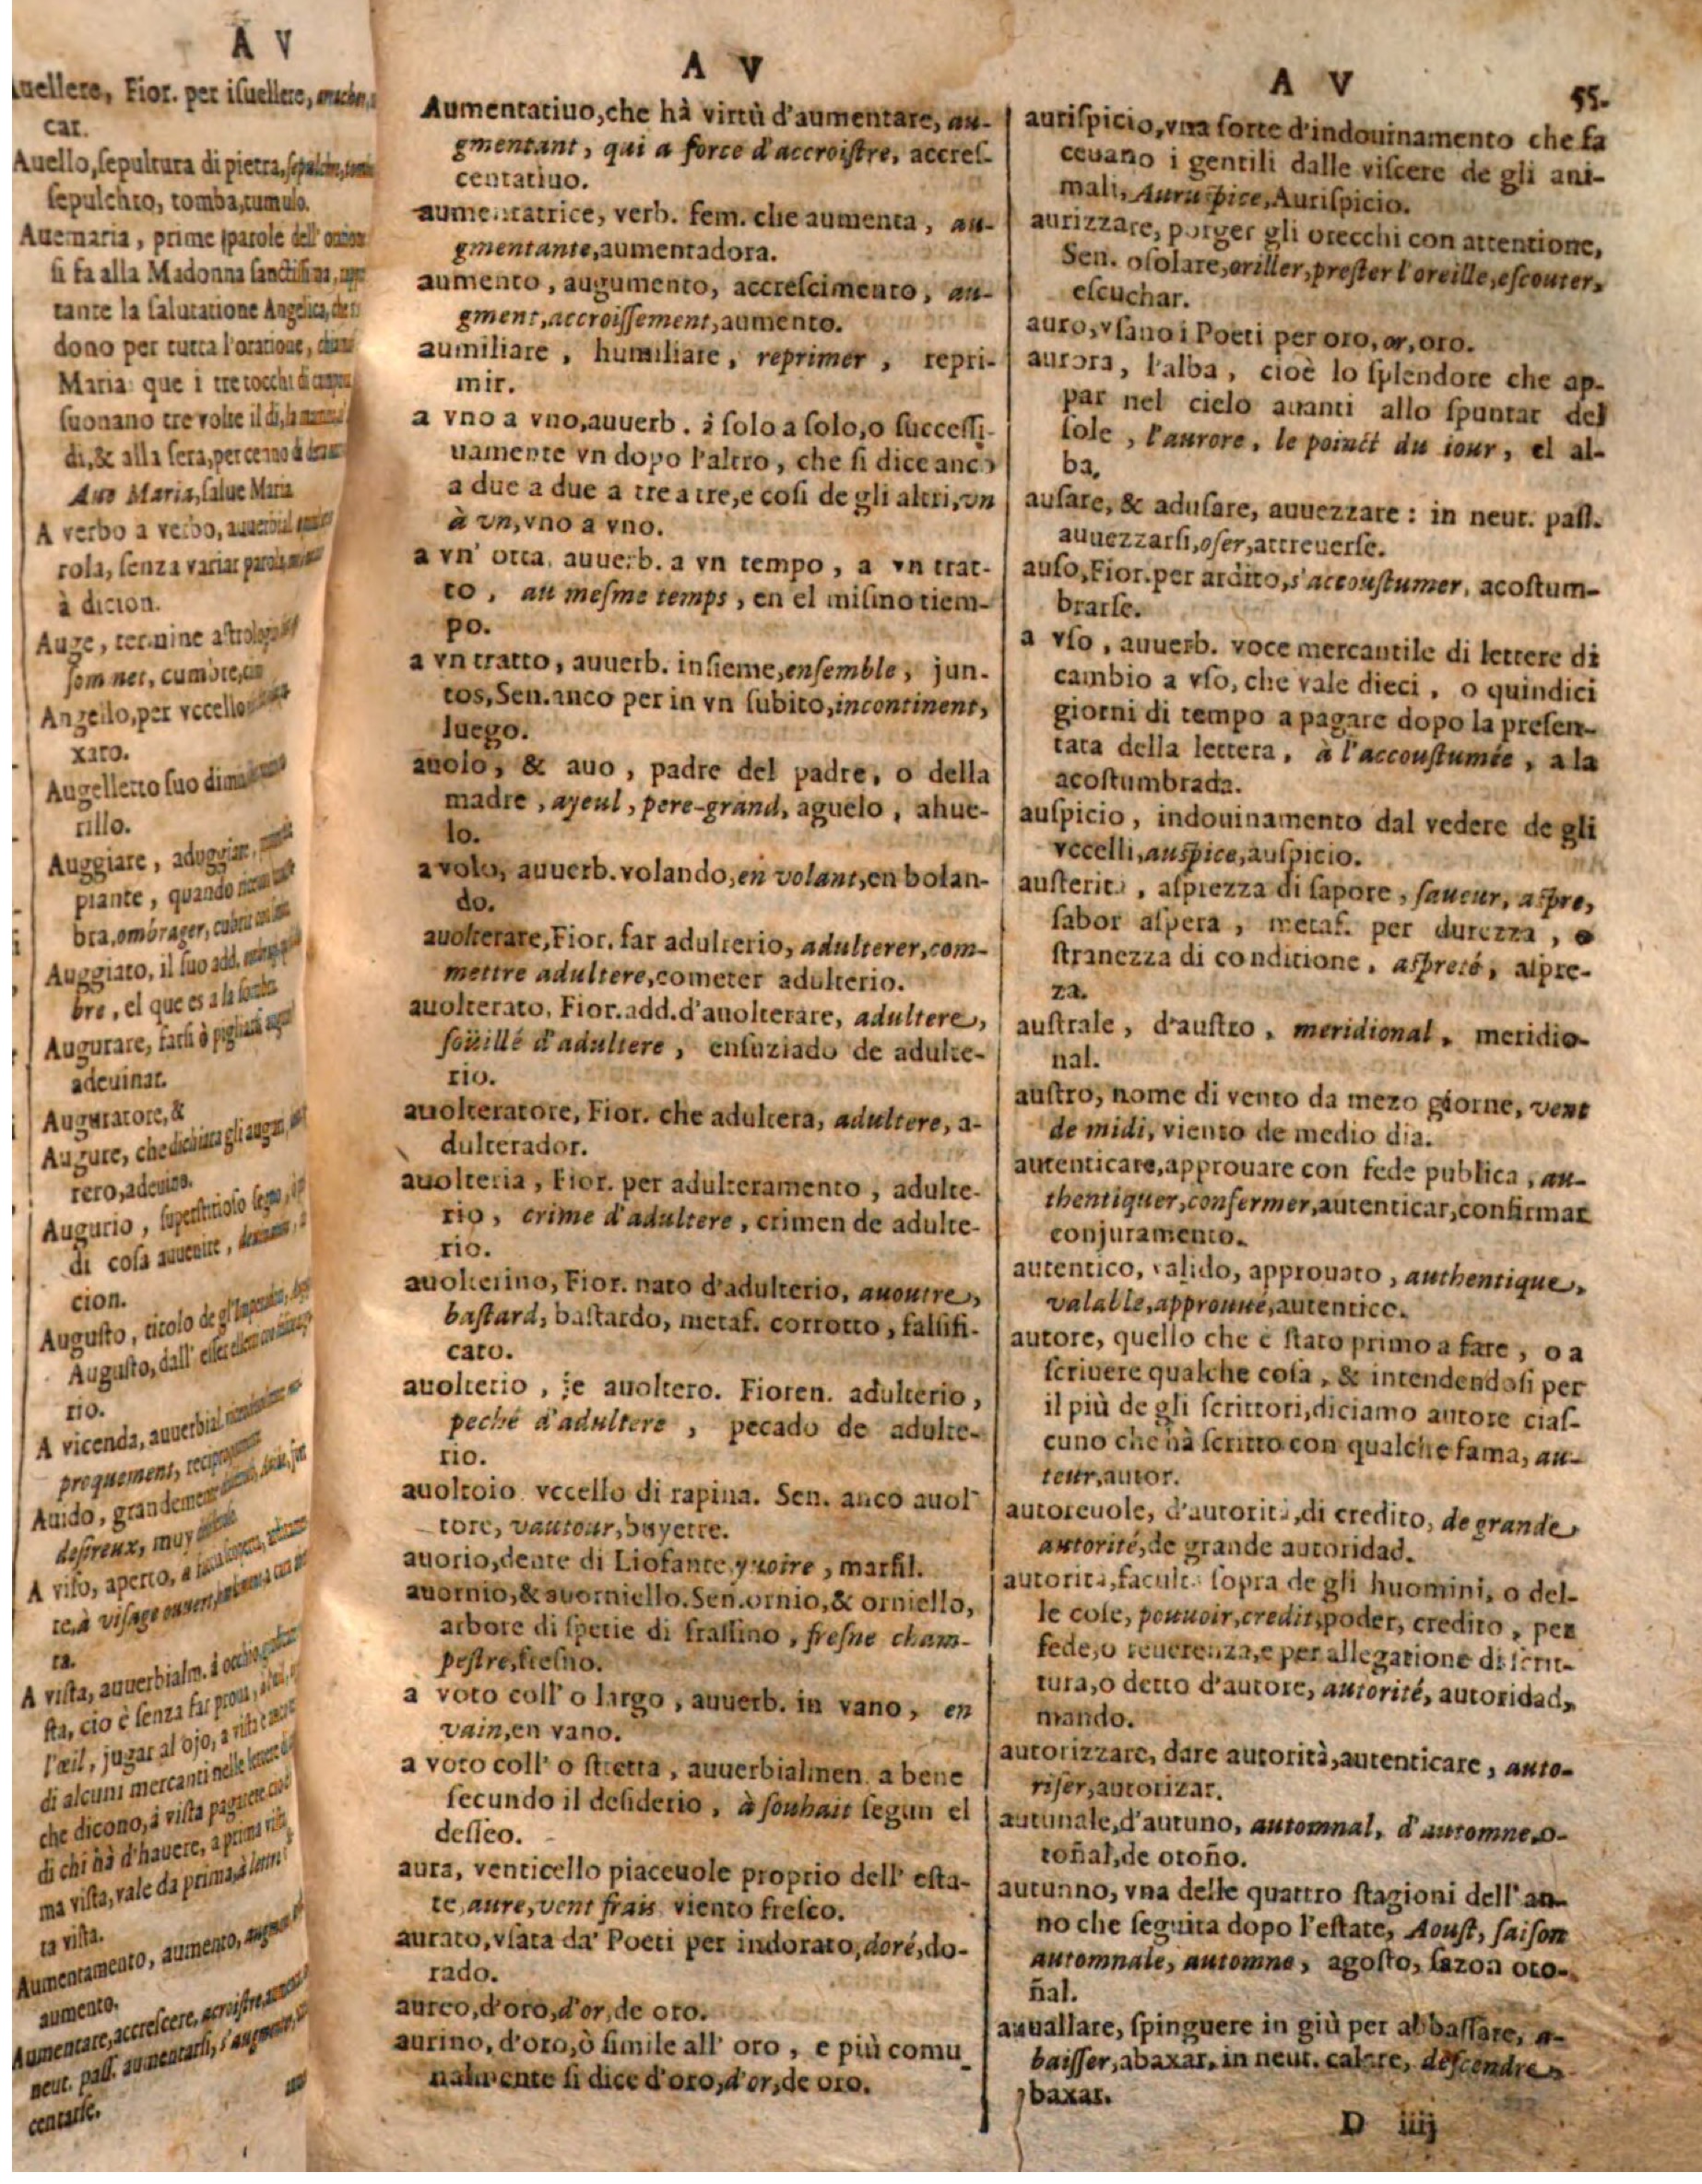 A V
Auello, ſepultura di pietra,
ſepulchro, tomba, tumulo.
Auemaria, prime parole dell'
ſi fa alla Madonna ſanctiſſima,
tante la ſalutatione Angelica,
dono per tutta l'oratione,
Maria que i tre tocchi di
ſuonano tre volte il di,
di, & alla ſera, per cenno
Aue Maria, ſalue Maria
A verbo a verbo,
rola, ſenza variar
à dicion.
Auge, termine
ſommet, cumbre,
Augello, per vccello
xaro.
Augelletto ſuo
rillo.
Auggiare, aduggiar,
piante, quando
bra, ombrager,
Auggiato, il ſuo add.
bre, el que es a la
Augurare, farſi ò pigliarſi
adeuinar.
Auguratore, &
Augure, che dichiara gli auguri,
rero, adeuino.
Augurio, ſuperſtitioſo ſegno,
di coſa auuenire,
cion.
Auguſto, titolo de gl'Imperadori,
Auguſto, dall'
rio.
A vicenda, auuerbial
proquement,
Auido, grandemente
deſireux, muy
A viſo, aperto, a
te, à viſage ouuert,
ra.
A viſta, auuerbialm. à occhio
ſta, cio è ſenza far proua,
l'œil, jugar al ojo, a viſta
di alcuni mercanti nelle lettere
che dicono, à viſta pagarete
di chi hà d'hauere, a prima
ma viſta, vale da prima,
ta viſta.
Aumentamento, aumento,
aumento.
Aumentare, accreſcere, acroiſtre,
neut. paſſ. aumentarſi, s'augmenter,
centarſe.
A V
Aumentatiuo, che hà virtù d'aumentare, au-
gmentant, qui a force d'accroiſtre, accreſ-
centatiuo.
aumentatrice, verb. fem. che aumenta, au-
gmentante, aumentadora.
aumento, augumento, accreſcimento, au-
gment, accroiſſement, aumento.
aumiliare, humiliare, reprimer, repri-
mir.
a vno a vno, auuerb. à ſolo a ſolo, o ſucceſſi-
uamente vn dopo l'altro, che ſi dice anco
a due a due a tre a tre, e coſi de gli altri, vn
à vn, vno a vno.
a vn' otta, auuerb. a vn tempo, a vn trat-
to, au meſme temps, en el miſmo tiem-
po.
a vn tratto, auuerb. inſieme, enſemble, jun-
tos, Sen. anco per in vn ſubito, incontinent,
luego.
auolo, & auo, padre del padre, o della
madre, ayeul, pere-grand, aguelo, ahue-
lo.
a volo, auuerb. volando, en volant, en bolan-
do.
auolterare, Fior. far adulterio, adulterer, com-
mettre adultere, cometer adulterio.
auolterato, Fior. add. d'auolterare, adultere,
ſoüillé d'adultere, enſuziado de adulte-
rio.
auolteratore, Fior. che adultera, adultere, a-
dulterador.
auolteria, Fior. per adulteramento, adulte-
rio, crime d'adultere, crimen de adulte-
rio.
auolterino, Fior. nato d'adulterio, auoutre,
baſtard, baſtardo, metaf. corrotto, falſifi-
cato.
auolterio, e auoltero. Fioren. adulterio,
peché d'adultere, pecado de adulte-
rio.
auoltoio vccello di rapina. Sen. anco auol
tore, vautour, buyetre.
auorio, dente di Liofante, yuoire, marfil.
auornio, & auorniello. Sen. ornio, & orniello,
arbore di ſpetie di fraſſino, freſne cham-
peſtre, freſno.
a voto coll' o largo, auuerb. in vano, en
vain, en vano.
a voto coll' o ſtretta, auuerbialmen. a bene
ſecundo il deſiderio, à ſouhait ſegun el
deſſeo.
aura, venticello piaceuole proprio dell' eſta-
te, aure, vent frais viento freſco.
aurato, vſata da' Poeti per indorato, doré, do-
rado.
aureo, d'oro, d'or, de oro.
aurino, d'oro, ò ſimile all' oro, e più comu
nalmente ſi dice d'oro, d'or, de oro.
A V 55.
auriſpicio, vna ſorte d'indouinamento che fa
ceuano i gentili dalle viſcere de gli ani-
mali, Auruſpice, Auriſpicio.
aurizzare, porger gli orecchi con attentione,
Sen. oſolare, oriller, preſter l'oreille, eſcouter,
eſcuchar.
auro, vſano i Poeti per oro, or, oro.
aurora, l'alba, cioè lo ſplendore che ap-
par nel cielo auanti allo ſpuntar del
ſole, l'aurore, le poinct du iour, el al-
ba.
auſare, & aduſare, auuezzare: in neut. paſſ.
auuezzarſi, oſer, attreuerſe.
auſo, Fior. per ardito, s'accouſtumer, acoſtum-
brarſe.
a vſo, auuerb. voce mercantile di lettere di
cambio a vſo, che vale dieci, o quindici
giorni di tempo a pagare dopo la preſen-
tata della lettera, à l'accouſtumée, a la
acoſtumbrada.
auſpicio, indouinamento dal vedere de gli
vccelli, auſpice, auſpicio.
auſterità, aſprezza di ſapore, ſaueur, aſpre,
ſabor aſpera, metaf. per durezza, o
ſtranezza di conditione, aſpreté, aſpre-
za.
auſtrale, d'auſtro, meridional, meridio-
nal.
auſtro, nome di vento da mezo giorne, vent
de midi, viento de medio dia.
autenticare, approuare con fede publica, au-
thentiquer, confermer, autenticar, confirmar
conjuramento.
autentico, valido, approuato, authentique,
valable, approuué, autentico.
autore, quello che è ſtato primo a fare, o a
ſcriuere qualche coſa, & intendendoſi per
il più de gli ſcrittori, diciamo autore ciaſ-
cuno che hà ſcritto con qualche fama, au-
teur, autor.
autoreuole, d'autorità, di credito, de grande
autorité, de grande autoridad.
autorità, facultà ſopra de gli huomini, o del-
le coſe, pouuoir, credit, poder, credito, per
fede, o reuerenza, e per allegatione di ſcrit-
tura, o detto d'autore, autorité, autoridad,
mando.
autorizzare, dare autorità, autenticare, auto-
riſer, autorizar.
autunale, d'autuno, automnal, d'automne, o-
toñal, de otoño.
autunno, vna delle quattro ſtagioni dell' an-
no che ſeguita dopo l'eſtate, Aouſt, ſaiſon
automnale, automne, agoſto, ſazon oto-
ñal.
auuallare, ſpinguere in giù per abbaſſare, a-
baiſſer, abaxar, in neut. calare, deſcendre,
baxar.
D iiij